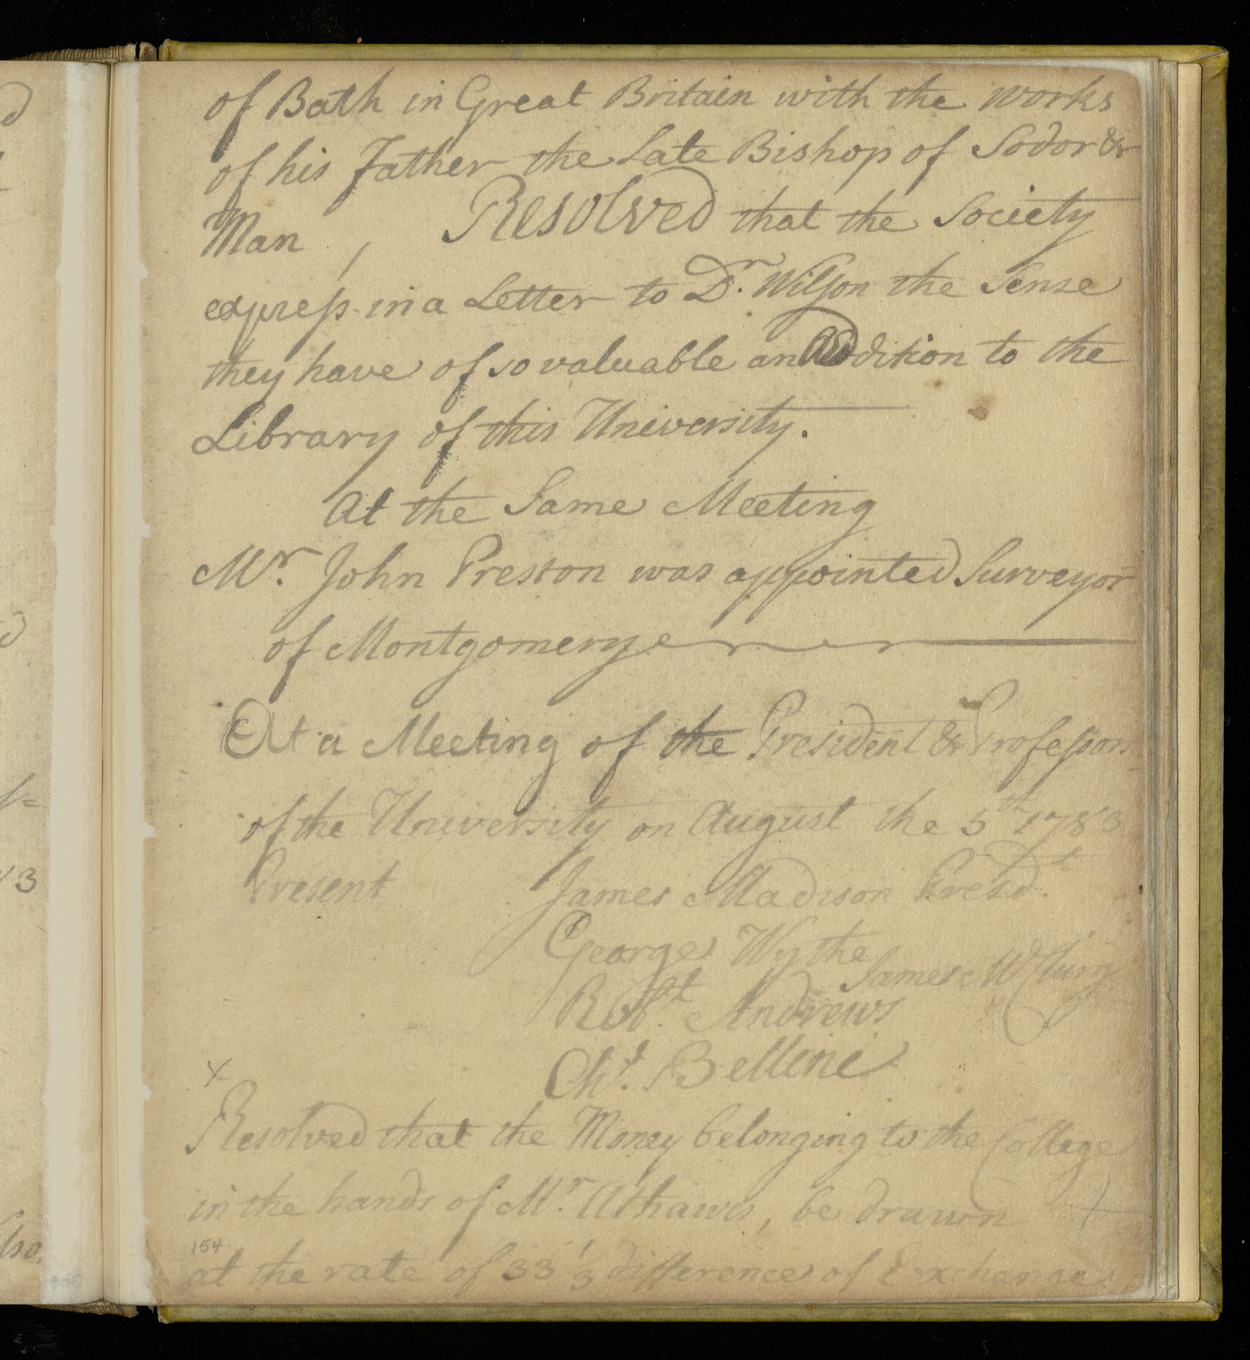 of Bath in Great Britain with the works
of his Father the Late Bishop of Sodor &
Man, Resolved that the Society
express in a Letter to Dr. Wilson the Sense
they have of so valuable an Addition to the
Library of this University.
At the Same Meeting
Mr. John Preston was appointed Surveyor
of Montgomery
At a Meeting of the President & Professors
of the University on August the 5th 1783
Present James Madison Presdt.
George Wythe
James McClurg
Robt. Andrews
Chs. Bellini
x
Resolved that the Money belonging to the College
in the hands of Mr. Athawes, be drawn
154
at the rate of 33 1/3 difference of Exchange